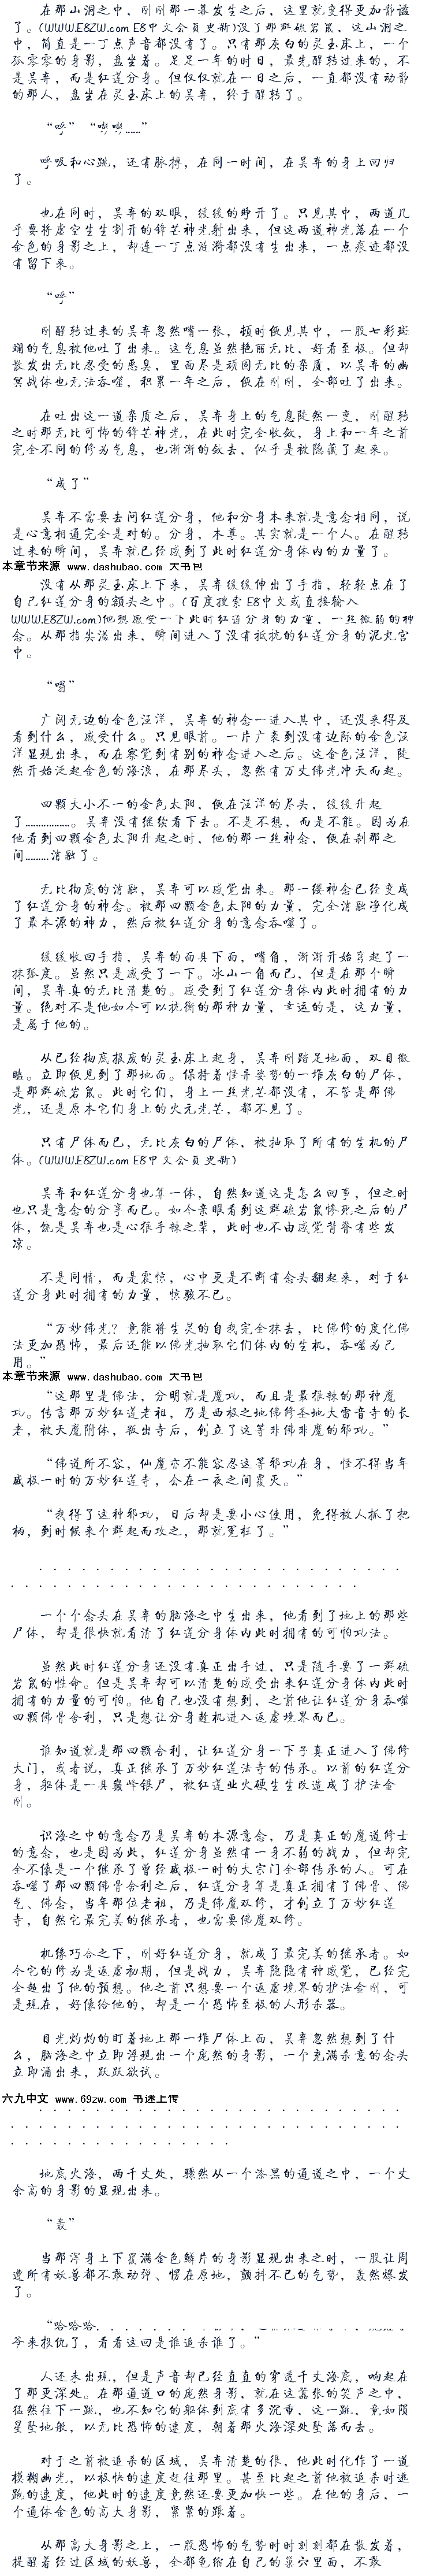 在那山洞之中，刚刚那一幕发生之后，这里就变得更加静谧
了。(WWW.E8ZW.com E8中文会员更新)没了那群硫岩鼠，这山洞之
中，简直是一丁点声音都没有了。只有那灰白的灵玉床上，一个
孤零零的身影，盘坐着。足足一年的时日，最先醒转过来的，不
是吴弃，而是红莲分身。但仅仅就在一日之后，一直都没有动静
的那人，盘坐在灵玉床上的吴弃，终于醒转了。
“呼” “嘭嘭……”
呼吸和心跳，还有脉搏，在同一时间，在吴弃的身上回归
了。
也在同时，吴弃的双眼，缓缓的睁开了。只见其中，两道几
乎要将虚空生生割开的锋芒神光射出来，但这两道神光落在一个
金色的身影之上，却连一丁点涟漪都没有生出来，一点痕迹都没
有留下来。
“呼”
刚醒转过来的吴弃忽然嘴一张，顿时便见其中，一股七彩斑
斓的气息被他吐了出来。这气息虽然艳丽无比，好看至极。但却
散发出无比忍受的恶臭，里面尽是顽固无比的杂质，以吴弃的幽
冥战体也无法吞噬，积累一年之后，便在刚刚，全部吐了出来。
在吐出这一道杂质之后，吴弃身上的气息陡然一变，刚醒转
之时那无比可怖的锋芒神光，在此时完全收敛，身上和一年之前
完全不同的修为气息，也渐渐的敛去，似乎是被隐藏了起来。
“成了”
吴弃不需要去问红莲分身，他和分身本来就是意念相同，说
是心意相通完全是对的。分身，本尊。其实就是一个人。在醒转
过来的瞬间，吴弃就已经感到了此时红莲分身体内的力量了。
本章节来源 www.dashubao.com 大书包
没有从那灵玉床上下来，吴弃缓缓伸出了手指，轻轻点在了
自己红莲分身的额头之中。(百度搜索 E8中文或直接输入
WWW.E8ZW.com)他想感受一下此时红莲分身的力量，一丝微弱的神
念。从那指尖溢出来，瞬间进入了没有抵抗的红莲分身的泥丸宫
中。
“嗡”
广阔无边的金色汪洋，吴弃的神念一进入其中，还没来得及
看到什么，感受什么。只见眼前。一片广袤到没有边际的金色汪
洋显现出来，而在察觉到有别的神念进入之后。这金色汪洋，陡
然开始泛起金色的海浪，在那尽头，忽然有万丈佛光冲天而起。
四颗大小不一的金色太阳，便在汪洋的尽头，缓缓升起
了………………。吴弃没有继续看下去。不是不想，而是不能。因为在
他看到四颗金色太阳升起之时，他的那一丝神念，便在刹那之
间………消融了。
无比彻底的消融，吴弃可以感觉出来。那一缕神念已经变成
了红莲分身的神念。被那四颗金色太阳的力量，完全消融净化成
了最本源的神力，然后被红莲分身的意念吞噬了。
缓缓收回手指，吴弃的面具下面，嘴角，渐渐开始弯起了一
抹弧度。虽然只是感受了一下。冰山一角而已，但是在那个瞬
间，吴弃真的无比清楚的。感受到了红莲分身体内此时拥有的力
量。绝对不是他如今可以抗衡的那种力量，幸运的是，这力量，
是属于他的。
从已经彻底报废的灵玉床上起身，吴弃刚踏足地面，双目微
瞌。立即便见到了那地面。保持着怪异姿势的一堆灰白的尸体，
是那群硫岩鼠。此时它们，身上一丝光芒都没有，不管是那佛
光，还是原本它们身上的火元光芒，都不见了。
只有尸体而已，无比灰白的尸体，被抽取了所有的生机的尸
体。(WWW.E8ZW.com E8中文会员更新)
吴弃和红莲分身也算一体，自然知道这是怎么回事，但之时
也只是意念的分享而已。如今亲眼看到这群硫岩鼠惨死之后的尸
体，饶是吴弃也是心狠手辣之辈，此时也不由感觉背脊有些发
凉。
不是同情，而是震惊，心中更是不断有念头翻起来，对于红
莲分身此时拥有的力量，惊骇不已。
“万妙佛光？竟能将生灵的自我完全抹去，比佛修的度化佛
法更加恐怖，最后还能以佛光抽取它们体内的生机，吞噬为己
用。”
本章节来源 www.dashubao.com 大书包
“这那里是佛法，分明就是魔功，而且是最狠辣的那种魔
功。传言那万妙红莲老祖，乃是西极之地佛修圣地大雷音寺的长
老，被天魔附体，叛出寺后，创立了这等非佛非魔的邪功。”
“佛道所不容，仙魔亦不能容忍这等邪功在身，怪不得当年
盛极一时的万妙红莲寺，会在一夜之间覆灭。”
“我得了这种邪功，日后却是要小心使用，免得被人抓了把
柄，到时候来个群起而攻之，那就冤枉了。”
一个个念头在吴弃的脑海之中生出来，他看到了地上的那些
尸体，却是很快就看清了红莲分身体内此时拥有的可怕功法。
虽然此时红莲分身还没有真正出手过，只是随手要了一群硫
岩鼠的性命。但是吴弃却可以清楚的感受出来红莲分身体内此时
拥有的力量的可怕。他自己也没有想到，之前他让红莲分身吞噬
四颗佛骨舍利，只是想让分身趁机进入返虚境界而已。
谁知道就是那四颗舍利，让红莲分身一下子真正进入了佛修
大门，或者说，真正继承了万妙红莲法寺的传承。以前的红莲分
身，躯体是一具巅峰银尸，被红莲业火硬生生改造成了护法金
刚。
识海之中的意念乃是吴弃的本源意念，乃是真正的魔道修士
的意念，也是因为此，红莲分身虽然有一身不弱的战力，但却完
全不像是一个继承了曾经盛极一时的大宗门全部传承的人。可在
吞噬了那四颗佛骨舍利之后，红莲分身算是真正拥有了佛骨、佛
气、佛念，当年那位老祖，乃是佛魔双修，才创立了万妙红莲
寺，自然它最完美的继承者，也需要佛魔双修。
机缘巧合之下，刚好红莲分身，就成了最完美的继承者。如
今它的修为是返虚初期，但是战力，吴弃隐隐有种感觉，已经完
全超出了他的预想。他之前只想要一个返虚境界的护法金刚，可
是现在，好像给他的，却是一个恐怖至极的人形杀器。
目光灼灼的盯着地上那一堆尸体上面，吴弃忽然想到了什
么，脑海之中立即浮现出一个庞然的身影，一个充满杀意的念头
立即涌出来，跃跃欲试。
六九中文 www.69zw.com 书迷上传
地底火海，两千丈处，骤然从一个漆黑的通道之中，一个丈
余高的身影的显现出来。
“轰”
当那浑身上下覆满金色鳞片的身影显现出来之时，一股让周
遭所有妖兽都不敢动弹、愣在原地，颤抖不已的气势，轰然爆发
了。
“哈哈哈
爷来报仇了，看看这回是谁追杀谁了。”
人还未出现，但是声音却已经直直的穿透千丈海底，响起在
了那更深处。在那通道口的庞然身影，就在这嚣张的笑声之中，
猛然往下一跳，也不知它的躯体到底有多沉重，这一跳，竟如陨
星坠地般，以无比恐怖的速度，朝着那火海深处坠落而去。
对于之前被追杀的区域，吴弃清楚的很，他此时化作了一道
模糊幽光，以极快的速度赶往那里。甚至比起之前他被追杀时逃
跑的速度，他此时的速度竟然还要更加快一些。在他的身后，一
个通体金色的高大身影，紧紧的跟着。
从那高大身影之上，一股恐怖的气势时时刻刻都在散发着，
提醒着经过区域的妖兽，全都龟缩在自己的巢穴里面，不敢